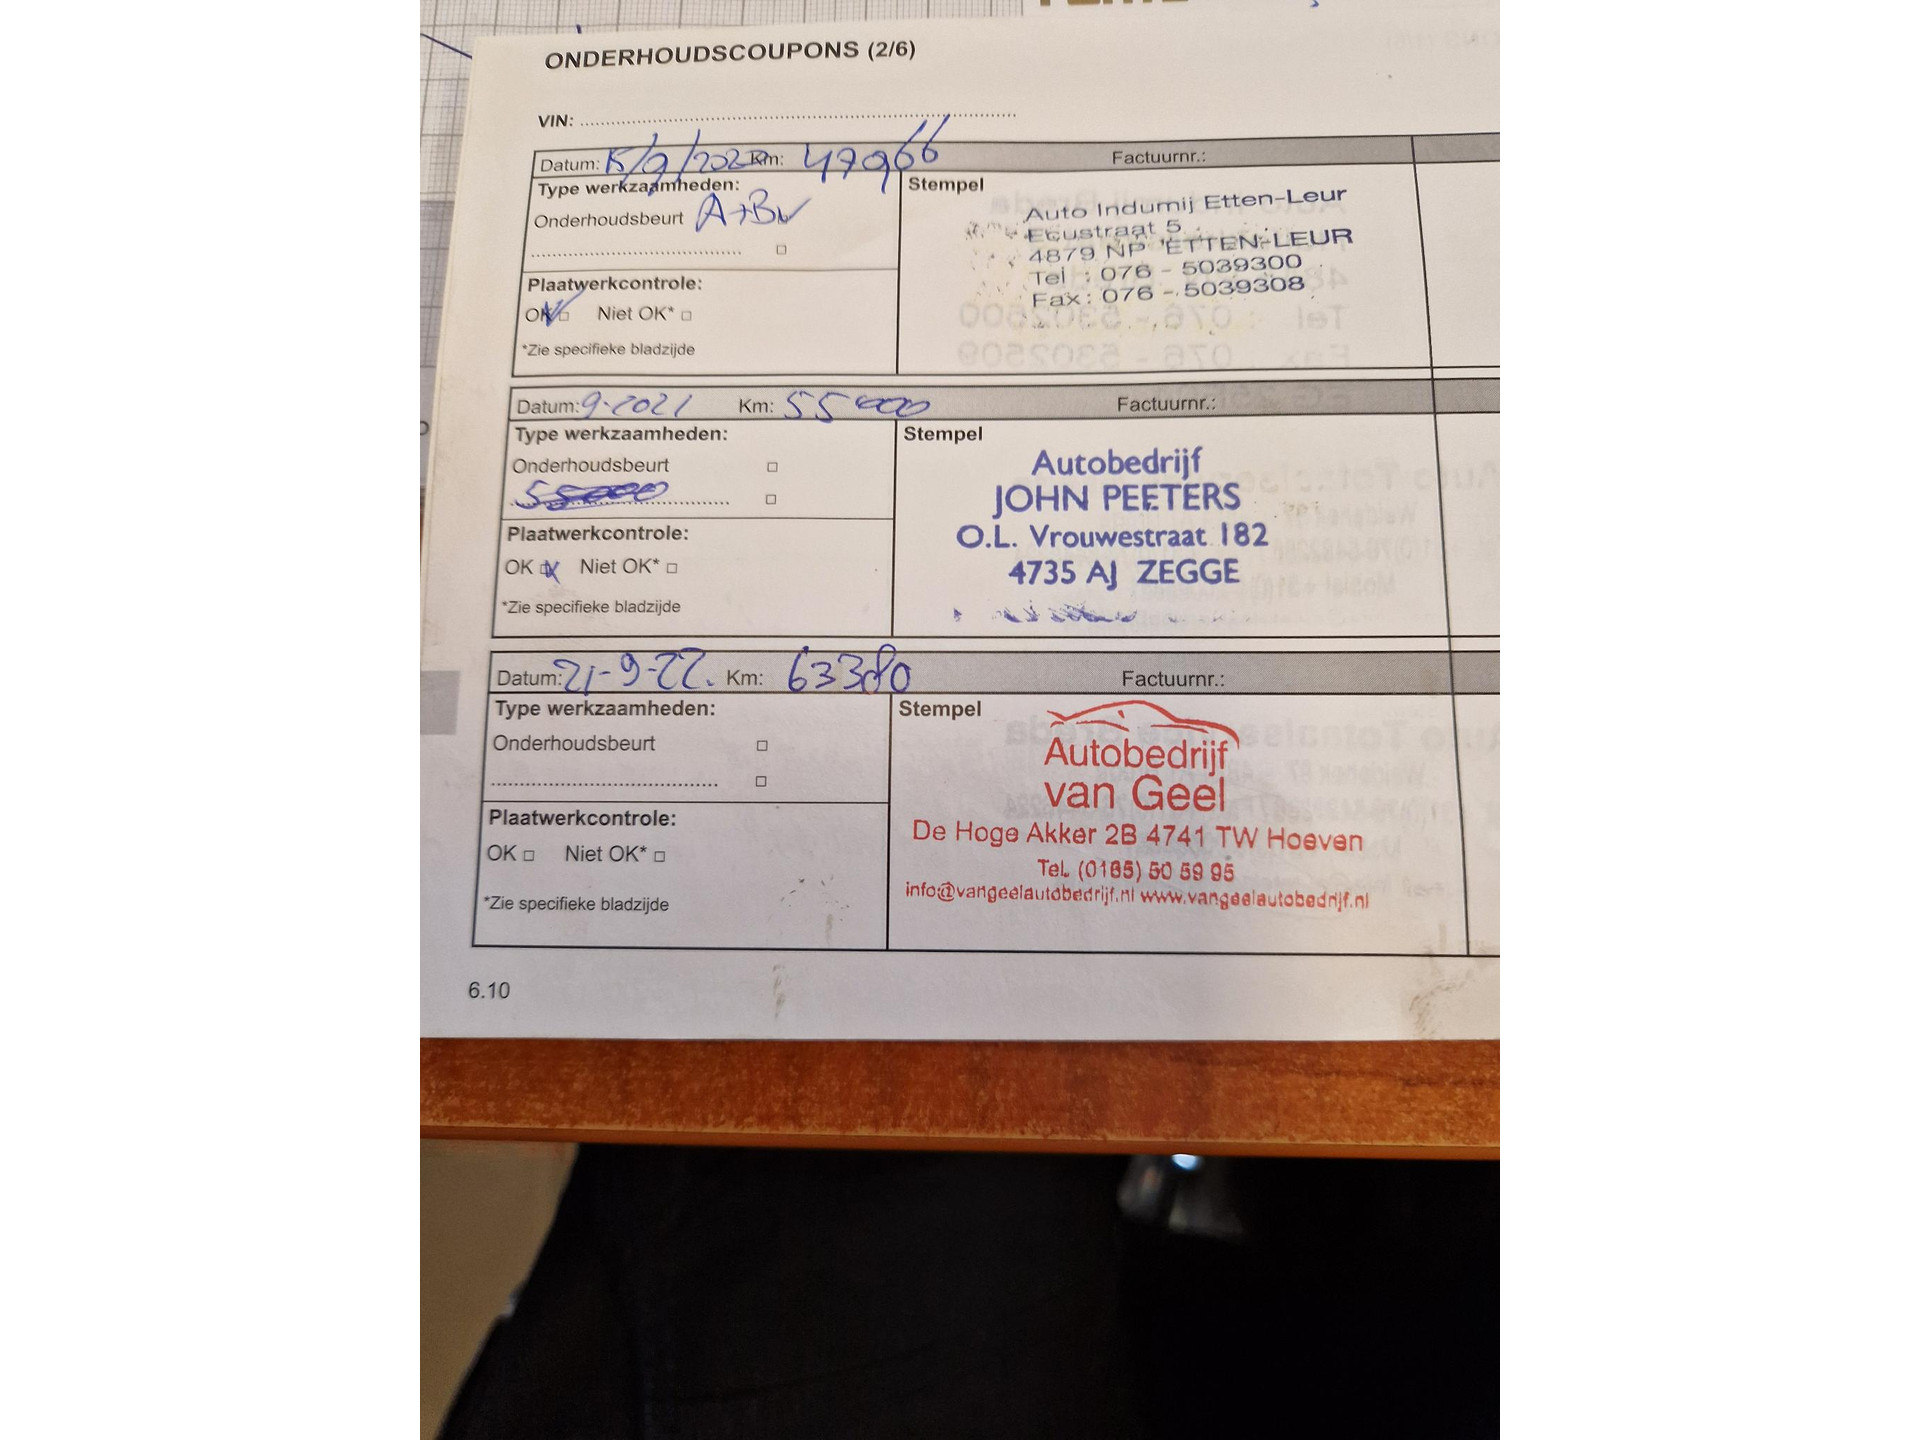 ONDERHOUDSCOUPONS (2/6)
VIN:
Datum: 15/9/2020 Km: 47966 Factuurnr.:
Type werkzaamheden:
Onderhoudsbeurt A+B
Plaatwerkcontrole:
OK Niet OK*
*Zie specifieke bladzijde
Stempel
Auto Indumij Etten-Leur
Ecustraat 5
4879 NP ETTEN-LEUR
Tel : 076 - 5039300
Fax: 076 - 5039308
Datum: 9-2021 Km: 55000 Factuurnr.:
Type werkzaamheden:
Onderhoudsbeurt
55000
Plaatwerkcontrole:
OK x Niet OK*
*Zie specifieke bladzijde
Stempel
Autobedrijf
JOHN PEETERS
O.L. Vrouwestraat 182
4735 AJ ZEGGE
Datum: 21-9-22. Km: 63380 Factuurnr.:
Type werkzaamheden:
Onderhoudsbeurt
Plaatwerkcontrole:
OK Niet OK*
*Zie specifieke bladzijde
Stempel
Autobedrijf
van Geel
De Hoge Akker 2B 4741 TW Hoeven
Tel. (0165) 50 59 95
info@vangeelautobedrijf.nl www.vangeelautobedrijf.nl
6.10